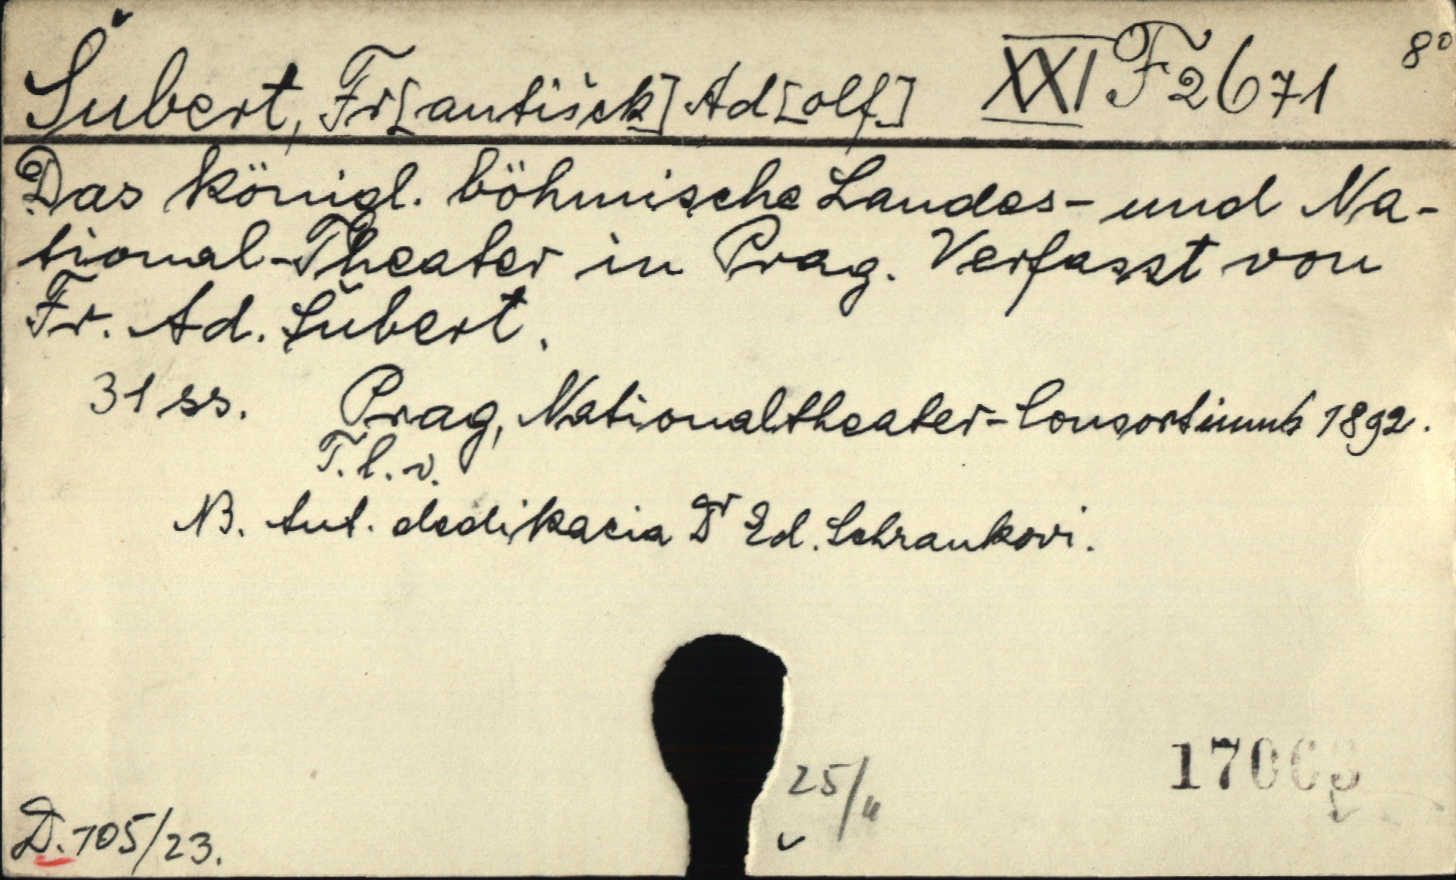 Šubert, Fr[antišek] Ad[olf] XXI F 2671 8°
Das königl. böhmische Landes- und Na-
tional-Theater in Prag. Verfasst von
Fr. Ad. Šubert.
31 ss. Prag, Nationaltheater-Consortium 1892.
T. l. v.
NB. Aut. dedikacia Dr Ed. Schrankovi.
25/4
D. 105/23.